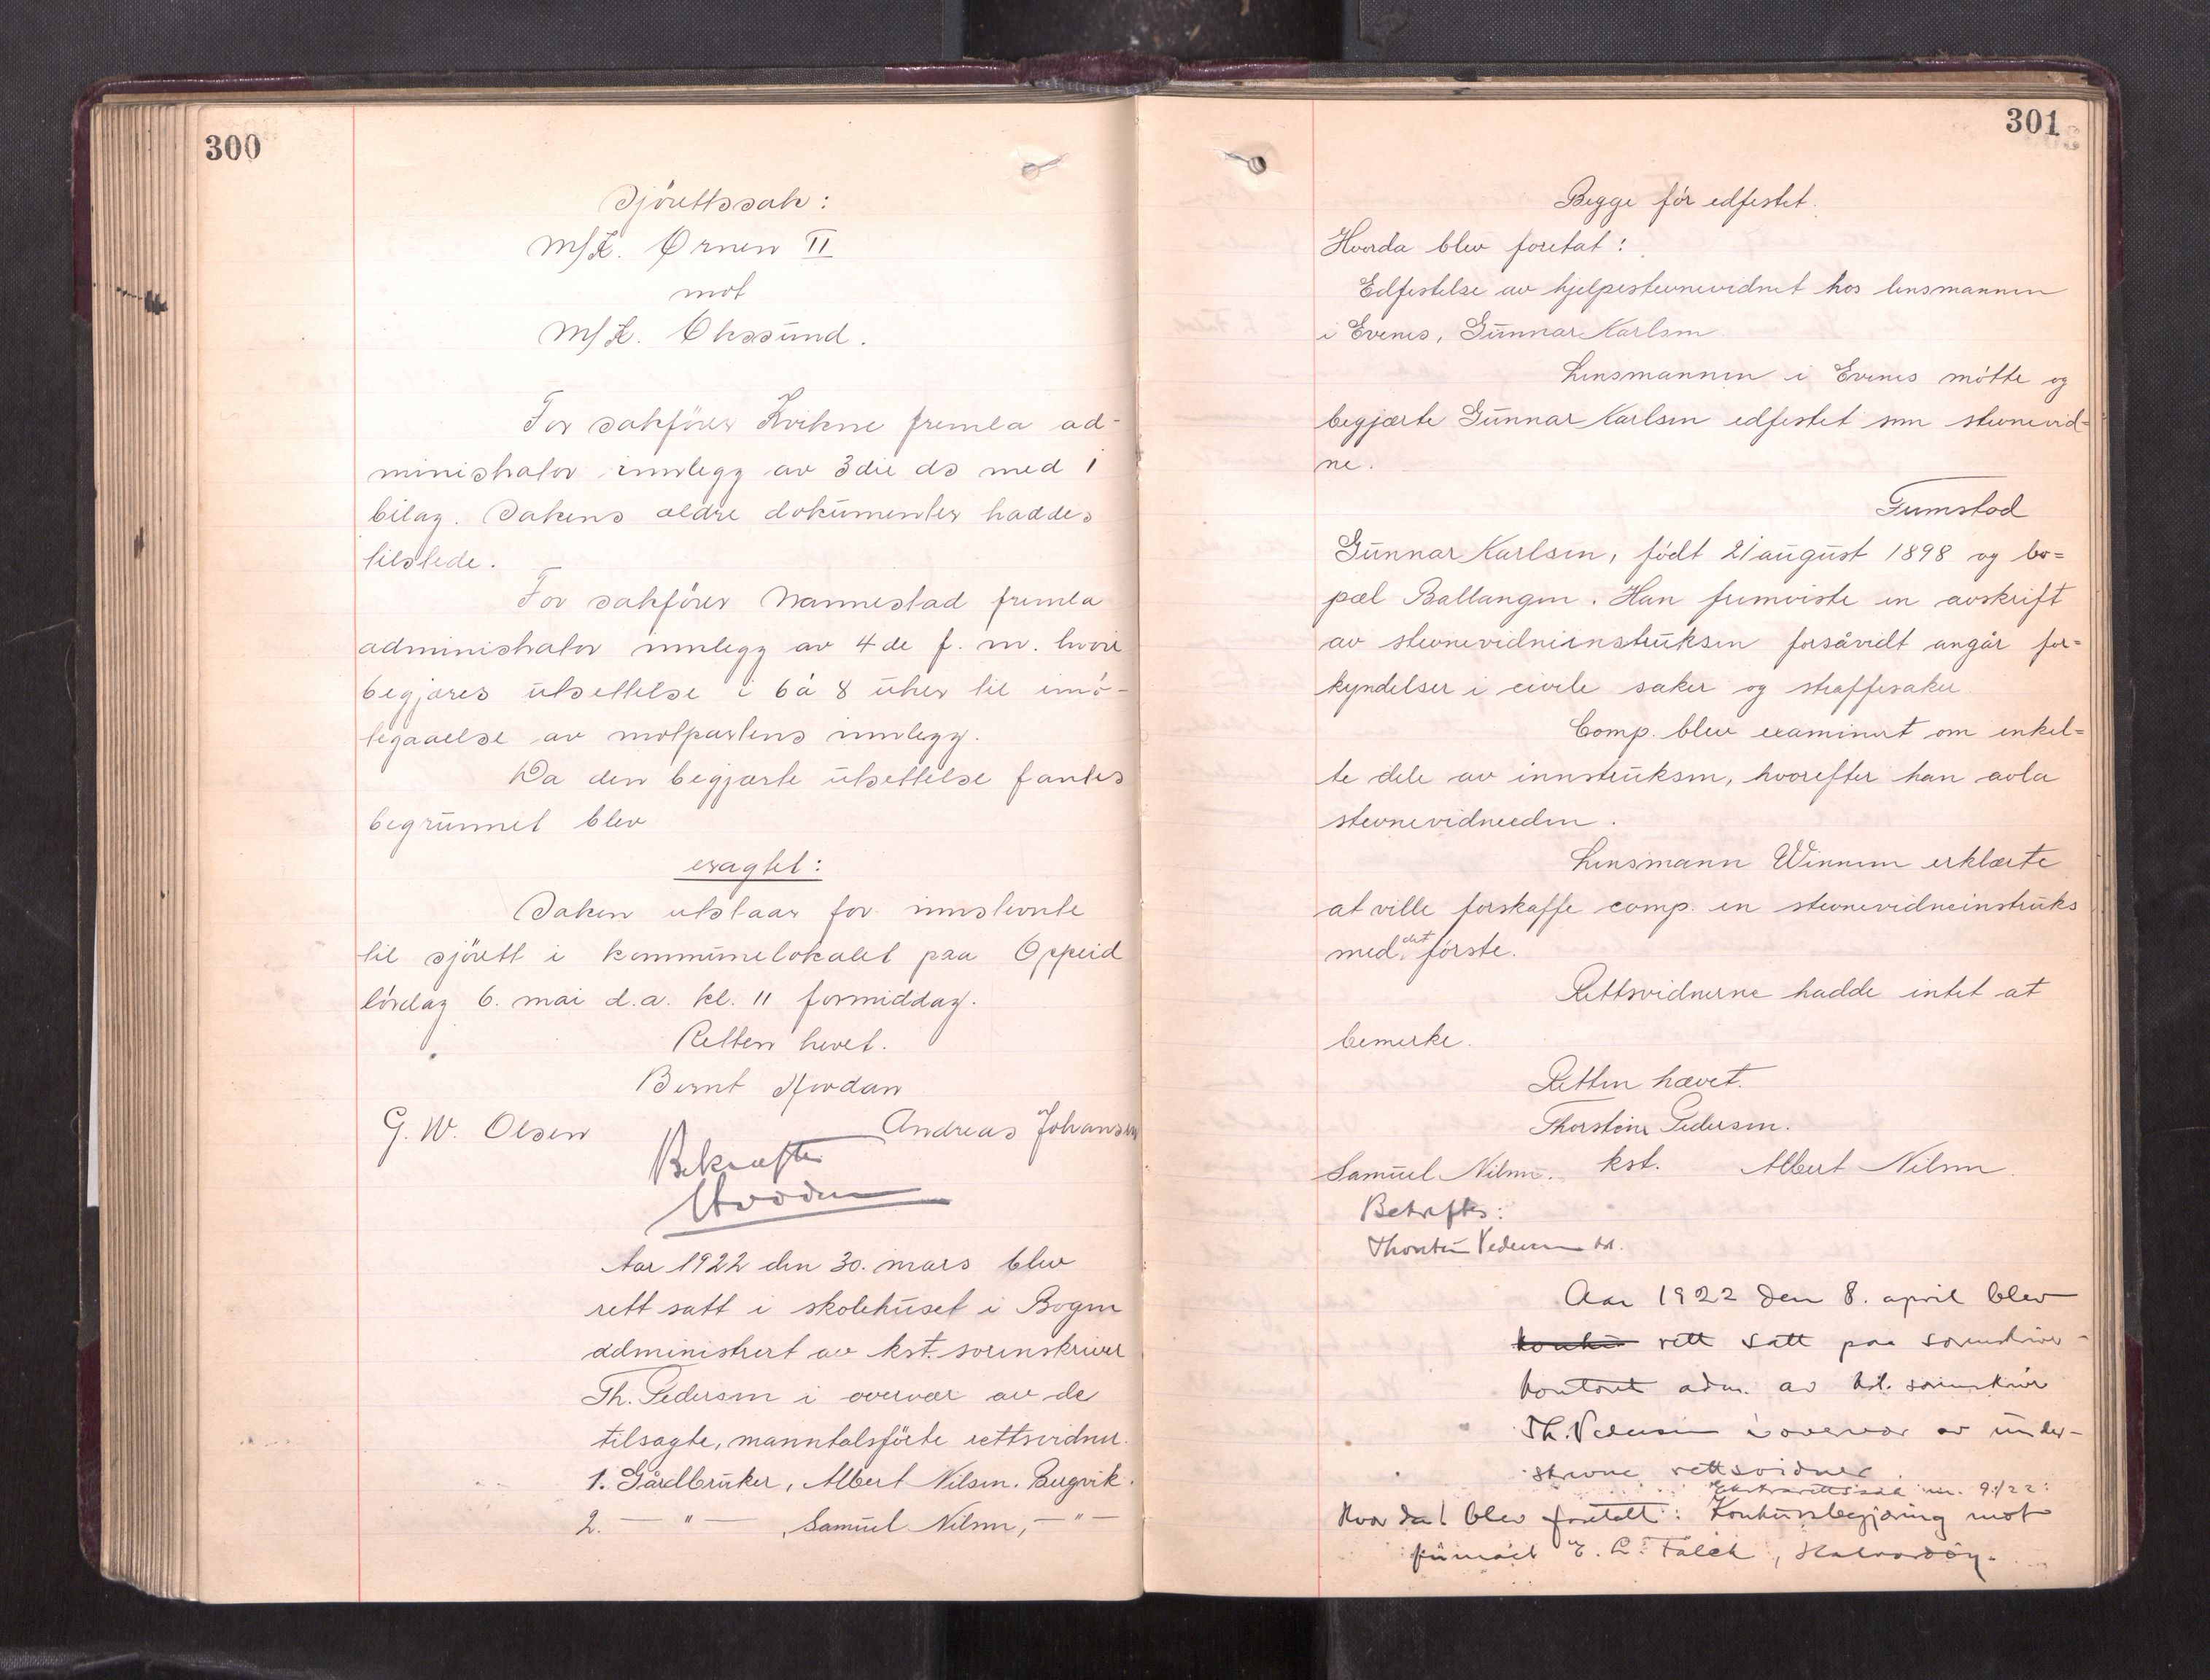 300
Sjörettssak:
M/K. Örnen II
mot
M/K. Okssund.
For sakförer Kvikne fremla ad-
ministrator innlegg av 3die ds med 1
bilag. Sakens ældre dokumenter haddes
tilstede.
For sakförer Nannestad fremla
administrator innlegg av 4de f. m. hvori
begjæres utsettelse i 6 á 8 uker til imö-
tegaaelse av motpartens innlegg.
Da den begjærte utsettelse fantes
begrunnet blev
eragtet:
Saken utstaar for innstevnte
til sjörett i kommunelokalet paa Oppeid
lördag 6. mai d.a. kl. 11 formiddag.
Retten hevet.
Bernt Hovdan
G. W. Olsen Andreas Johansen
Bekræftes
Hovdan
Aar 1922 den 30. mars blev
rett satt i skolehuset i Bogen
administrert av kst. sorenskriver
Th. Pedersen i overvær av de
tilsagte, manntalsförte rettsvidner.
1. Gårdbruker, Albert Nilsen. Bergvik.
2. — " — , Samuel Nilsen, — " —
301
Begge før edfestet.
Hvorda blev foretat:
Edfestelse av hjelpestevnevidnet hos lensmannen
i Evenes, Gunnar Karlsen.
Lensmannen i Evenes møtte og
begjærte Gunnar Karlsen edfestet som stevnevid=
ne.
Fremstod
Gunnar Karlsen, født 21 august 1898 og bo=
pæl Ballangen. Han fremviste en avskrift
av stevnevidneinstruksen forsåvidt angår for=
kyndelser i civile saker og straffesaker
Comp. blev examinert om enkel=
te dele av innstruksen, hvorefter han avla
stevnevidneeden.
Lensmann Winnem erklærte
at ville forskaffe comp. en stevnevidneinstruks
med det første.
Rettsvidnerne hadde intet at
bemerke.
Retten hævet.
Thorstein Pedersen.
Samuel Nilsen. kst. Albert Nilsen.
Betræftes:
Thorstein Pedersen kst.
Aar 1922 den 8. april blev
rett satt paa sorenskriver-
kontoret adm. av kst. sorenskriver
Th. Pedersen i overvær av under-
skrevne rettsvidner.
Ekstrarettssak nr. 9/22:
Hvorda blev foretatt: Konkursbegjæring mot
firmaet E. L. Falch,